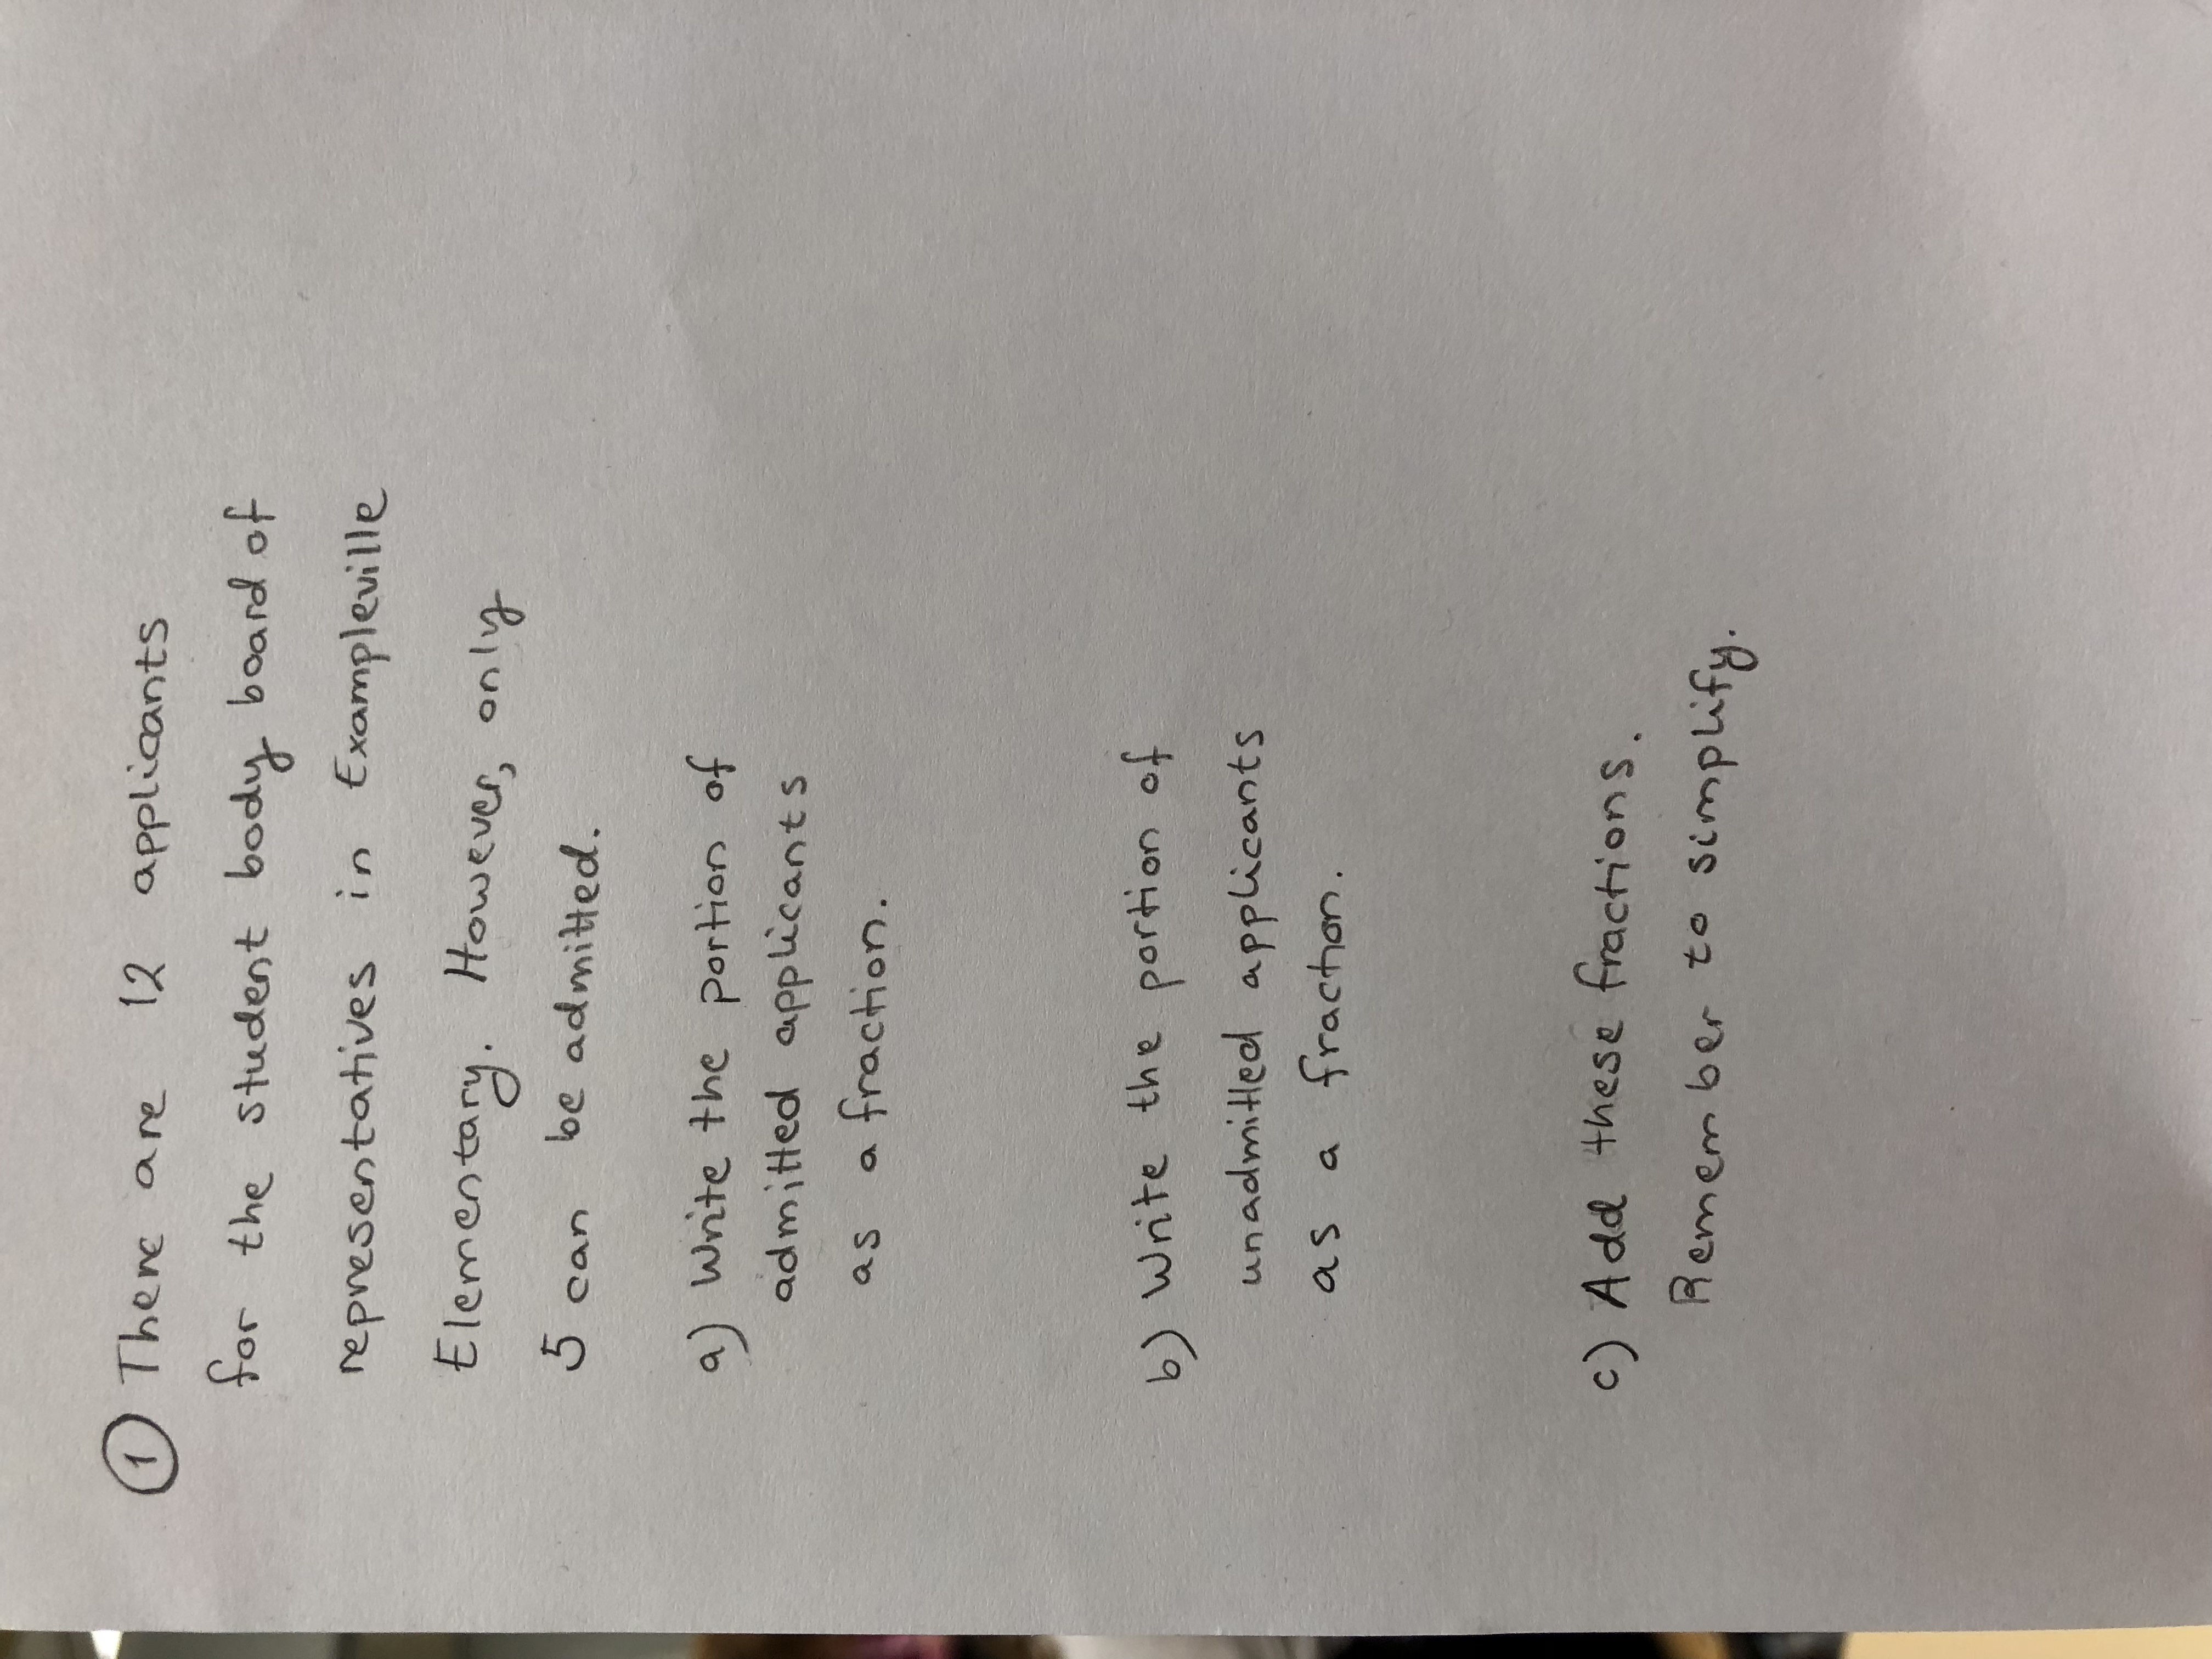 ① There are 12 applicants
for the student body board of
representatives in Exampleville
Elementary. However, only
5 can be admitted.
a) Write the portion of
admitted applicants
as a fraction.
b) Write the portion of
unadmitted applicants
as a fraction.
c) Add these fractions.
Remember to simplify.